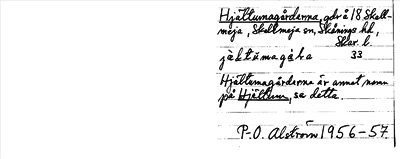 Hjältumagårdarna, gdr å 18 Skall-
meja, Skallmeja sn, Skånings hd,
Skar. l.
jäl̀tŭmagá̀ra 33
Hjältumagårdarna är annat namn
på Hjältum, se detta.
P-O. Alström 1956-57